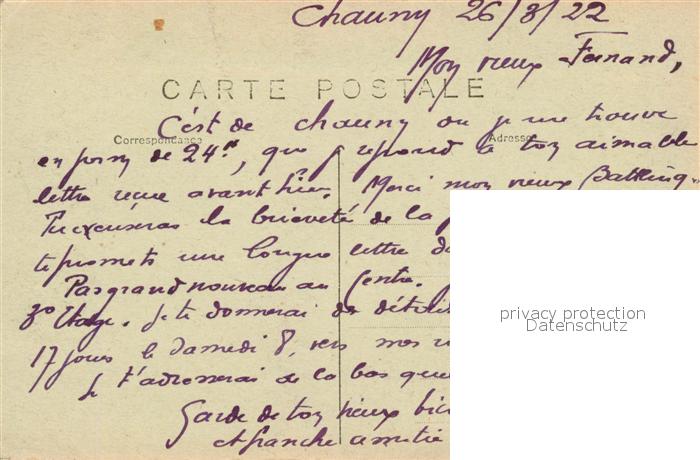 Chauny 26/8/22
Mon vieux Fernand,
CARTE POSTALE
C'est de Chauny ou je me trouve
Correspondance
Adresse
en perm de 24h, que je reponds à ton aimable
lettre reçue avant hier. Merci mon vieux Battling
Tu excuseras la brièveté de la
te promets une longue lettre
Pas grand nouveau au Centre.
3e Etage. Je te donnerai des détails
17 jours le Samedi 8, vers mes
Je t'adresserai de là bas
Garde de ton vieux
et franche amitié
privacy protection
Datenschutz